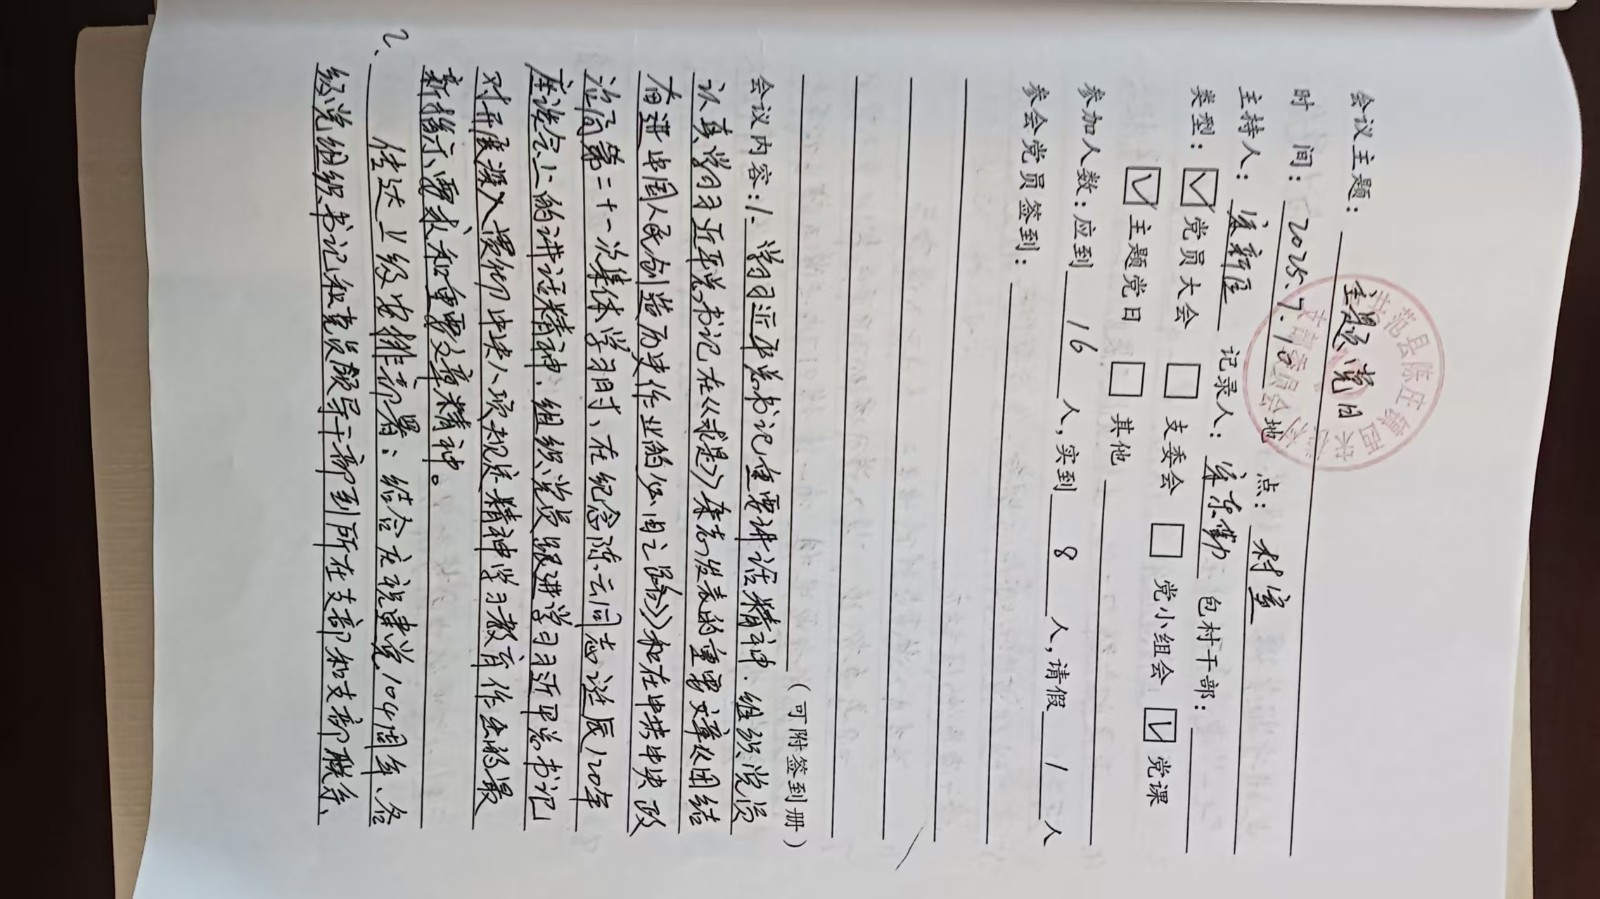 会议主题：主题党日
时 间：2025.7.10 地 点：村室
主持人：新征 记录人：宋东勤 包村干部：
类型：☑党员大会 □支委会 □党小组会 ☑党课
☑主题党日 □其他
参加人数：应到 16 人，实到 8 人，请假 1 人
参会党员签到：
（可附签到册）
会议内容：1. 学习习近平总书记重要讲话精神．组织党员
认真学习习近平总书记在《求是》杂志发表的重要文章《团结
奋进中国人民创造历史伟业的必由之路》和在中共中央政
治局第二十一次集体学习时、在纪念陈云同志诞辰120年
座谈会上的讲话精神．组织党员跟进学习习近平总书记
对开展深入贯彻中央八项规定精神学习教育作出的最
新指示要求和重要文章精神。
2、传达上级安排部署：结合庆祝建党104周年、各
级党组织书记和党员领导干部到所在支部和支部联系、
范县陈庄镇
村 委员会